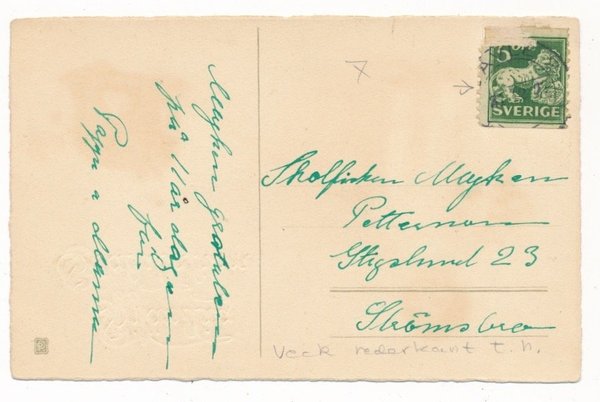 Majken gratuleras
på 11 års dagen
från
Pappa o Mamma
5
SVERIGE
Skolfröken Majken
Petterson
Stigslund 23
Strömsbro
Veck nederkant t.h.